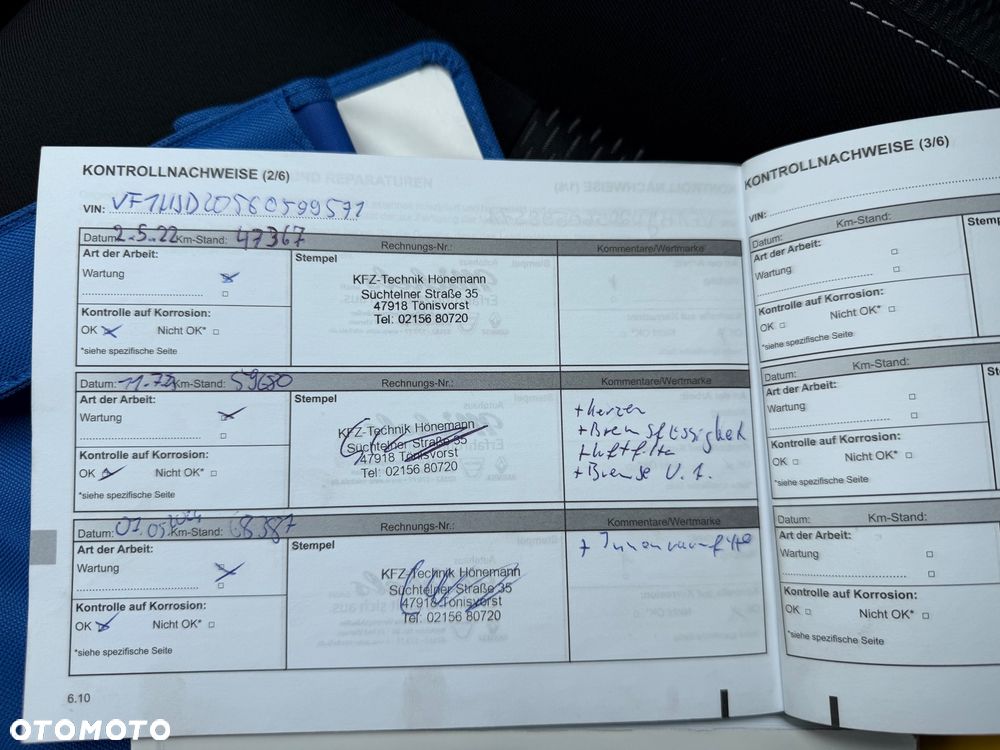 KONTROLLNACHWEISE (2/6)
VIN:
Datum: 2.5.22 Km-Stand: 47367 Rechnungs-Nr.: Kommentare/Wertmarke
Art der Arbeit:
Wartung
Kontrolle auf Korrosion:
OK Nicht OK*
*siehe spezifische Seite
Stempel
KFZ-Technik Hönemann
Süchtelner Straße 35
47918 Tönisvorst
Tel: 02156 80720
Datum: Km-Stand: 59680 Rechnungs-Nr.: Kommentare/Wertmarke
Art der Arbeit:
Wartung
Kontrolle auf Korrosion:
OK Nicht OK*
*siehe spezifische Seite
Stempel
KFZ-Technik Hönemann
Süchtelner Straße 35
47918 Tönisvorst
Tel: 02156 80720
+ Kerzen
+ Bremsflüssigkeit
+ Luftfilter
+ Bremse V. 1.
Datum: Km-Stand: 68.387 Rechnungs-Nr.: Kommentare/Wertmarke
Art der Arbeit:
Wartung
Kontrolle auf Korrosion:
OK Nicht OK*
*siehe spezifische Seite
Stempel
KFZ-Technik Hönemann
Süchtelner Straße 35
47918 Tönisvorst
Tel: 02156 80720
+ Innenraumfilter
6.10
KONTROLLNACHWEISE (3/6)
VIN:
Datum: Km-Stand:
Art der Arbeit:
Wartung
Kontrolle auf Korrosion:
OK Nicht OK*
*siehe spezifische Seite
Stemp
Datum: Km-Stand:
Art der Arbeit:
Wartung
Kontrolle auf Korrosion:
OK Nicht OK*
*siehe spezifische Seite
St
Datum: Km-Stand:
Art der Arbeit:
Wartung
Kontrolle auf Korrosion:
OK Nicht OK*
*siehe spezifische Seite
OTOMOTO